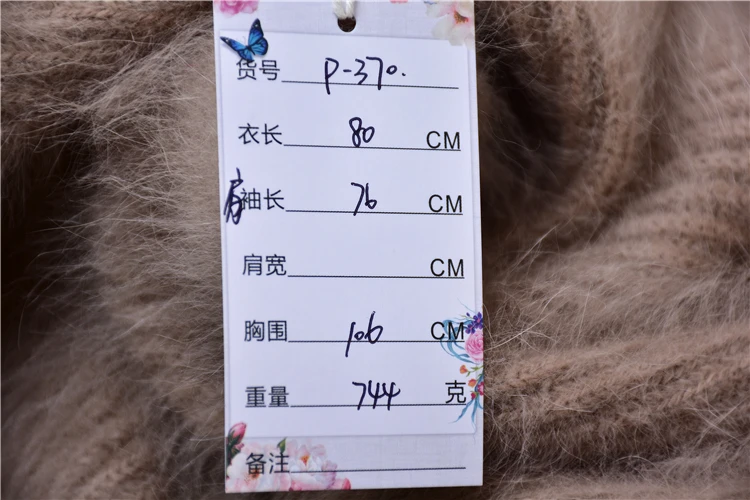 货号 P-370.
衣长 80 CM
肩袖长 76 CM
肩宽 CM
胸围 106 CM
重量 744 克
备注